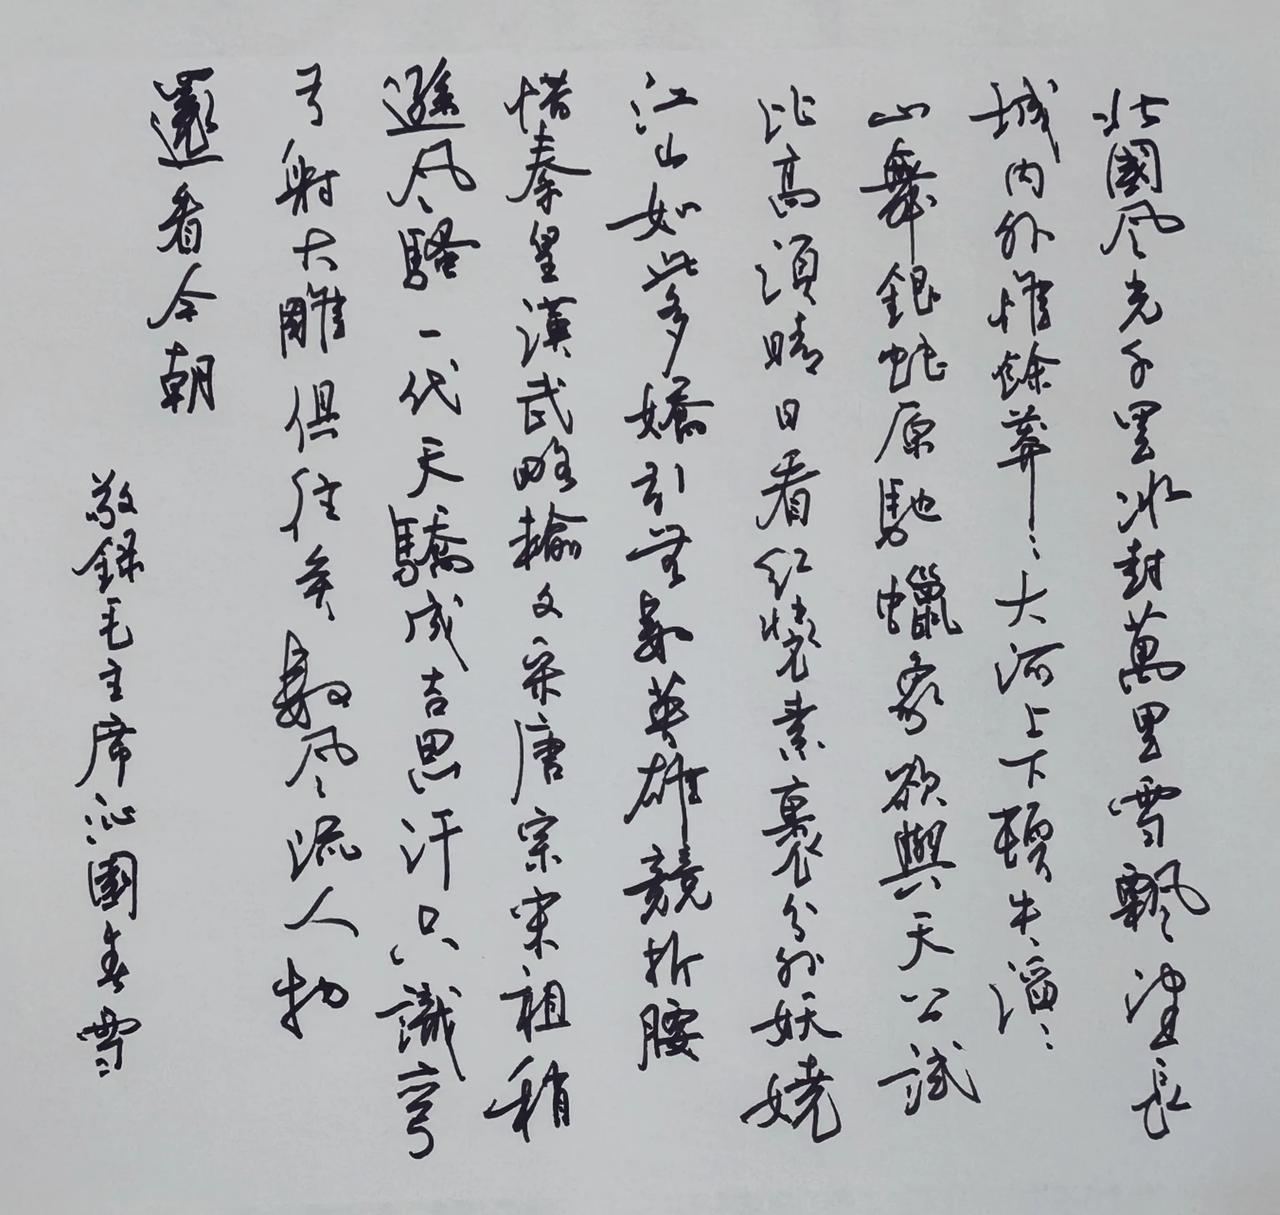 北國风光千里冰封萬里雪飄望長
城内外惟餘莽〻大河上下頓失滔〻
山舞銀蛇原馳蠟象欲與天公試
比高須晴日看紅裝素裹分外妖嬈
江山如此多嬌引無數英雄競折腰
惜秦皇漢武略輸文采唐宗宋祖稍
遜风騷一代天驕成吉思汗只識弯
弓射大雕俱往矣數风流人物
還看今朝
敬録毛主席沁園春雪